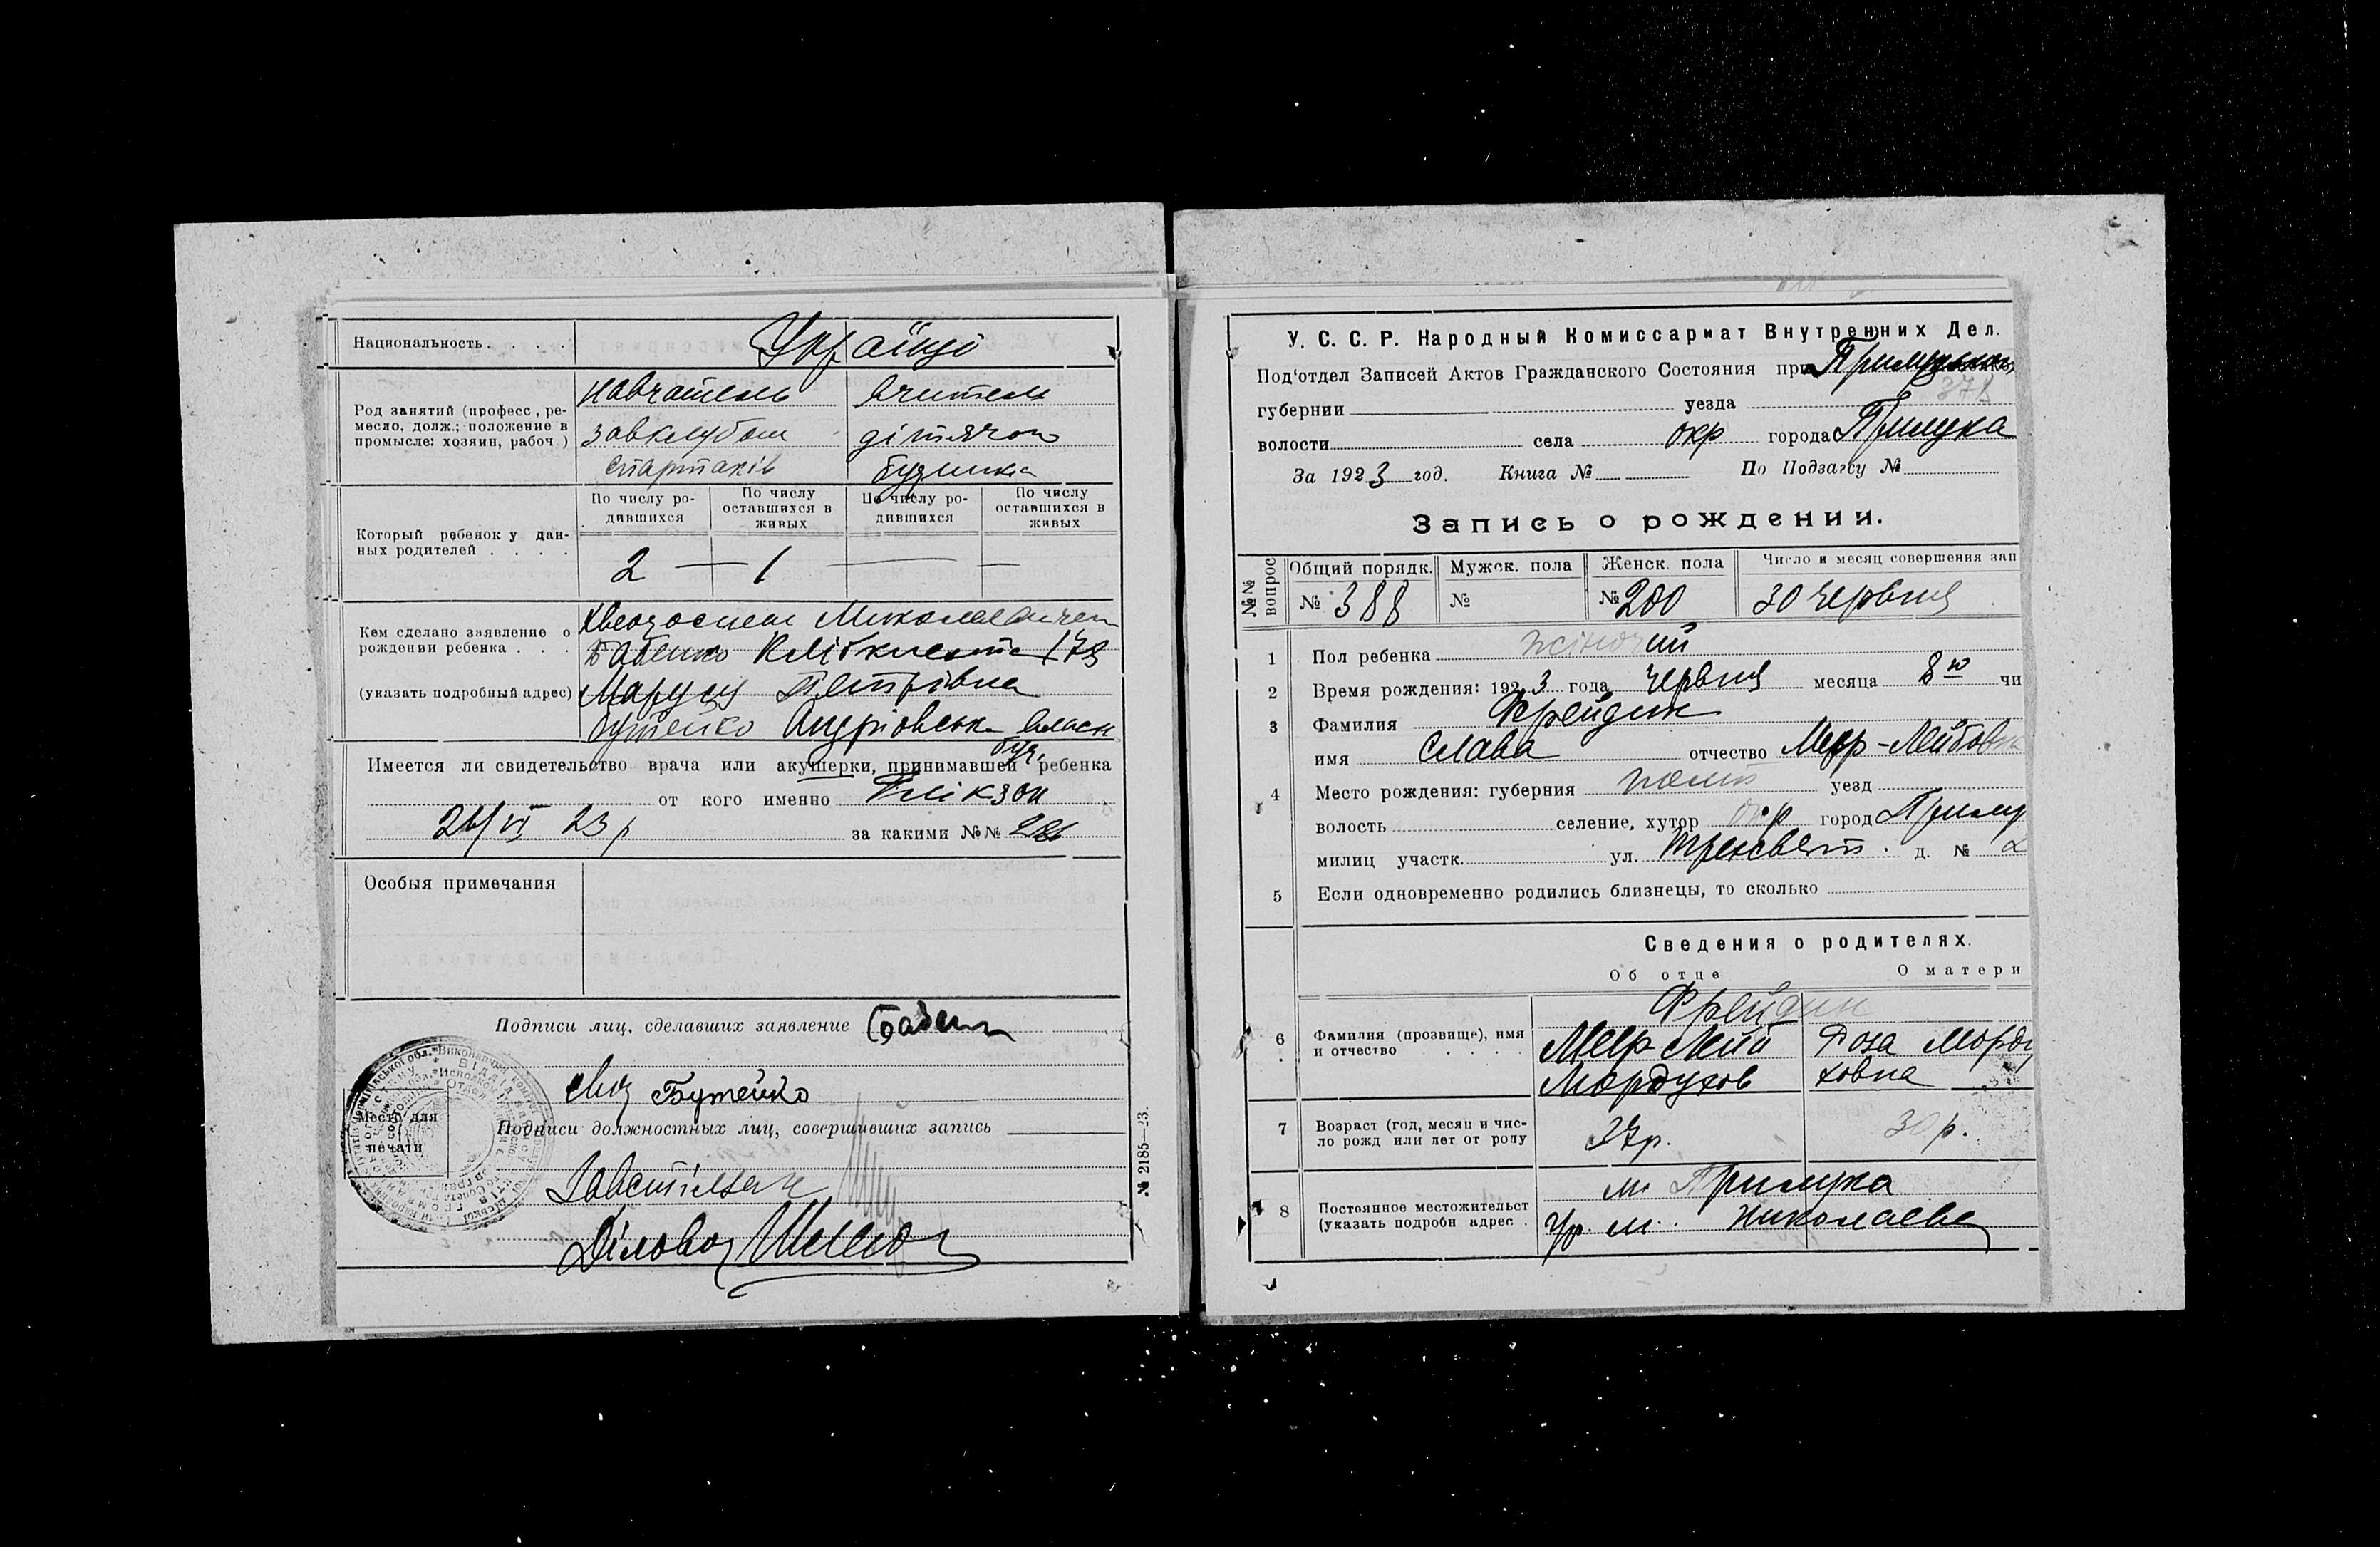 Национальность . . . . Українці
Род занятий (професс, ре-
месло, долж.; положение в
промысле: хозяин, рабоч.)
навчатель
завклубом
спартаків
вчитель
дітячого
будинка
Который ребенок у дан-
ных родителей . . . .
По числу ро-
дившихся
По числу
оставшихся в
живых
По числу ро-
дившихся
По числу
оставшихся в
живых
2 — 1 — —
Кем сделано заявление о
рождении ребенка . . .
(указать подробный адрес)
Миколаевичем
Бабенко 178
Маруся Петрівна
Бутейко Андріовська власн
буд.
Имеется ли свидетельство врача или акушерки, принимавшей ребенка
от кого именно Глікзон
24/VI 23 р за какими №№
Особыя примечания
Подписи лиц, сделавших заявление Бабенко
Бутейко
Подписи должностных лиц, совершивших запись
Место для
печати
Діловод
№ 2185—23.
У. С. С. Р. Народный Комиссариат Внутренних Дел.
Под'отдел Записей Актов Гражданского Состояния при
губернии уезда 378
волости села окр города Прилука
За 1923 год. Книга № По Подзагсу №
Запись о рождении.
№№
вопрос
Общий порядк. Мужск. пола Женск. пола Число и месяц совершения зап
№ 388 № № 200 30 червня
1 Пол ребенка жіночий
2 Время рождения: 1923 года червня месяца 8го чи
3 Фамилия Фрейдин
имя Слава отчество Меер-Лейбовна
4 Место рождения: губерния полт уезд
волость селение, хутор окр город Прилу
милиц участк. ул. Трехсвят. д. № 2
5 Если одновременно родились близнецы, то сколько
Сведения о родителях.
Об отце О матери
Фрейдин
6 Фамилия (прозвище), имя
и отчество . . . .
Меер-Лейб
Мордухов
Роза Морду
ховна
7 Возраст (год, месяц и чис-
ло рожд или лет от роду
37р. 30р.
8 Постоянное местожительст
(указать подробн адрес .
м. Прилука
гр. м. Николаева